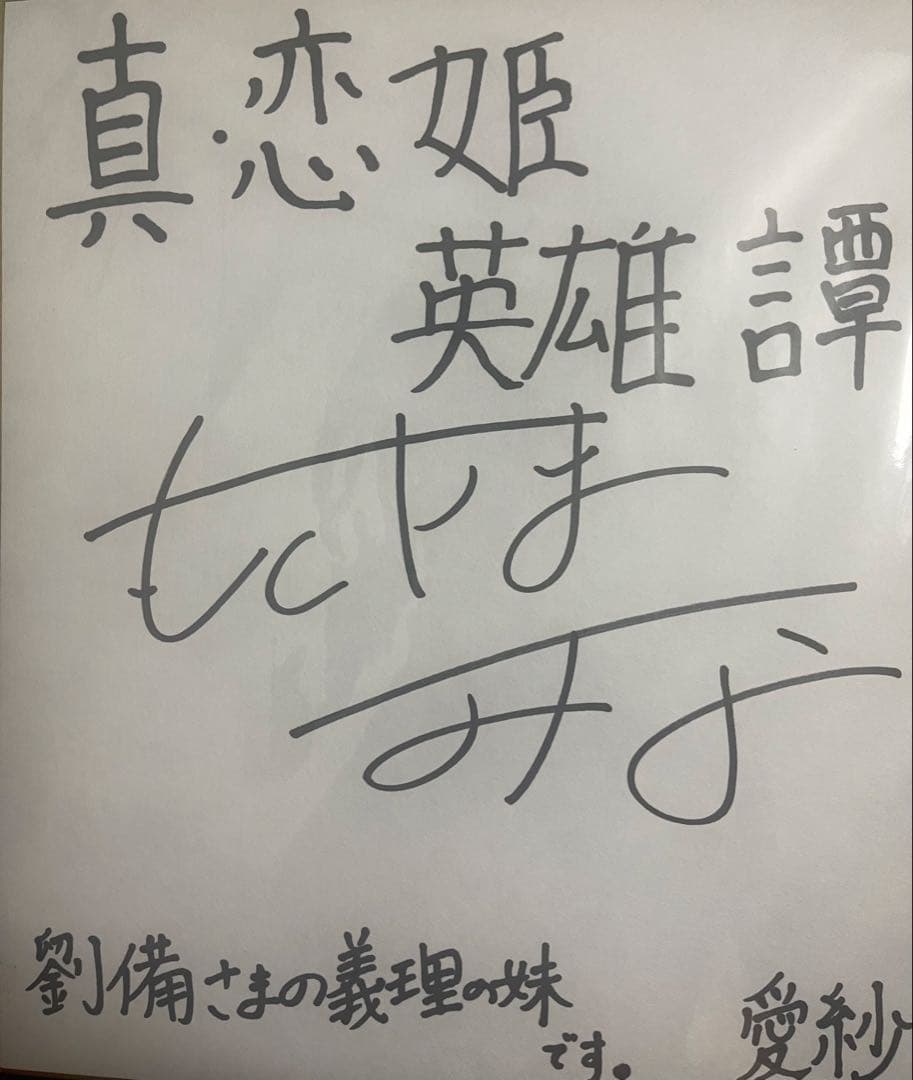 真・恋姫
英雄譚
もとやま
みな
劉備さまの義理の妹
です。
愛紗